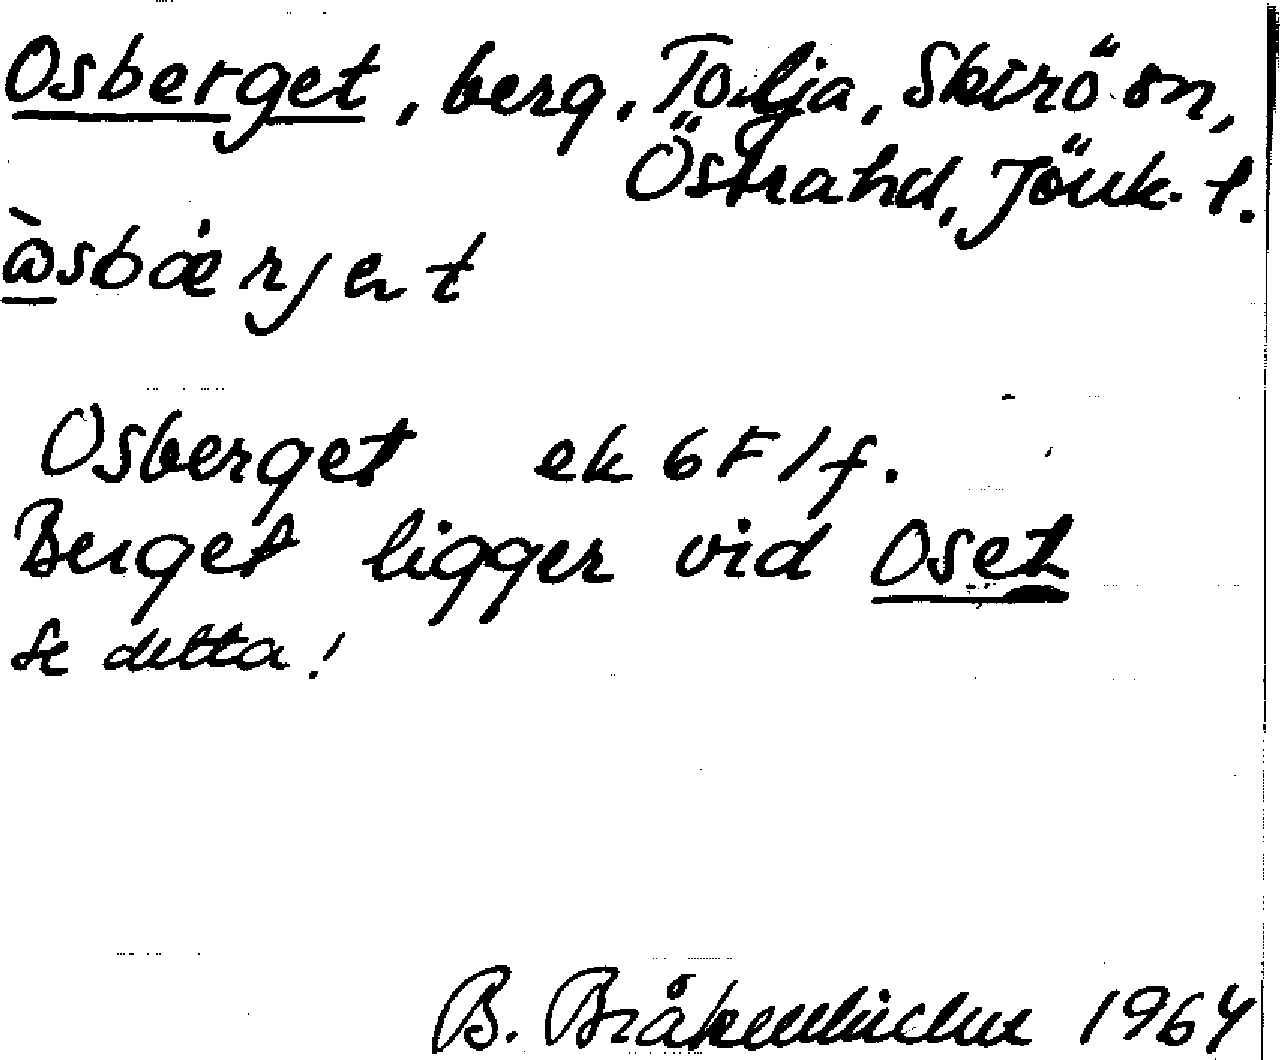 Osberget, berg. Tolja, Skirö sn,
Östra hd, Jönk. l.
Osberget ek 6 F 1 f.
Berget ligger vid Oset
Se detta!
B. 1964